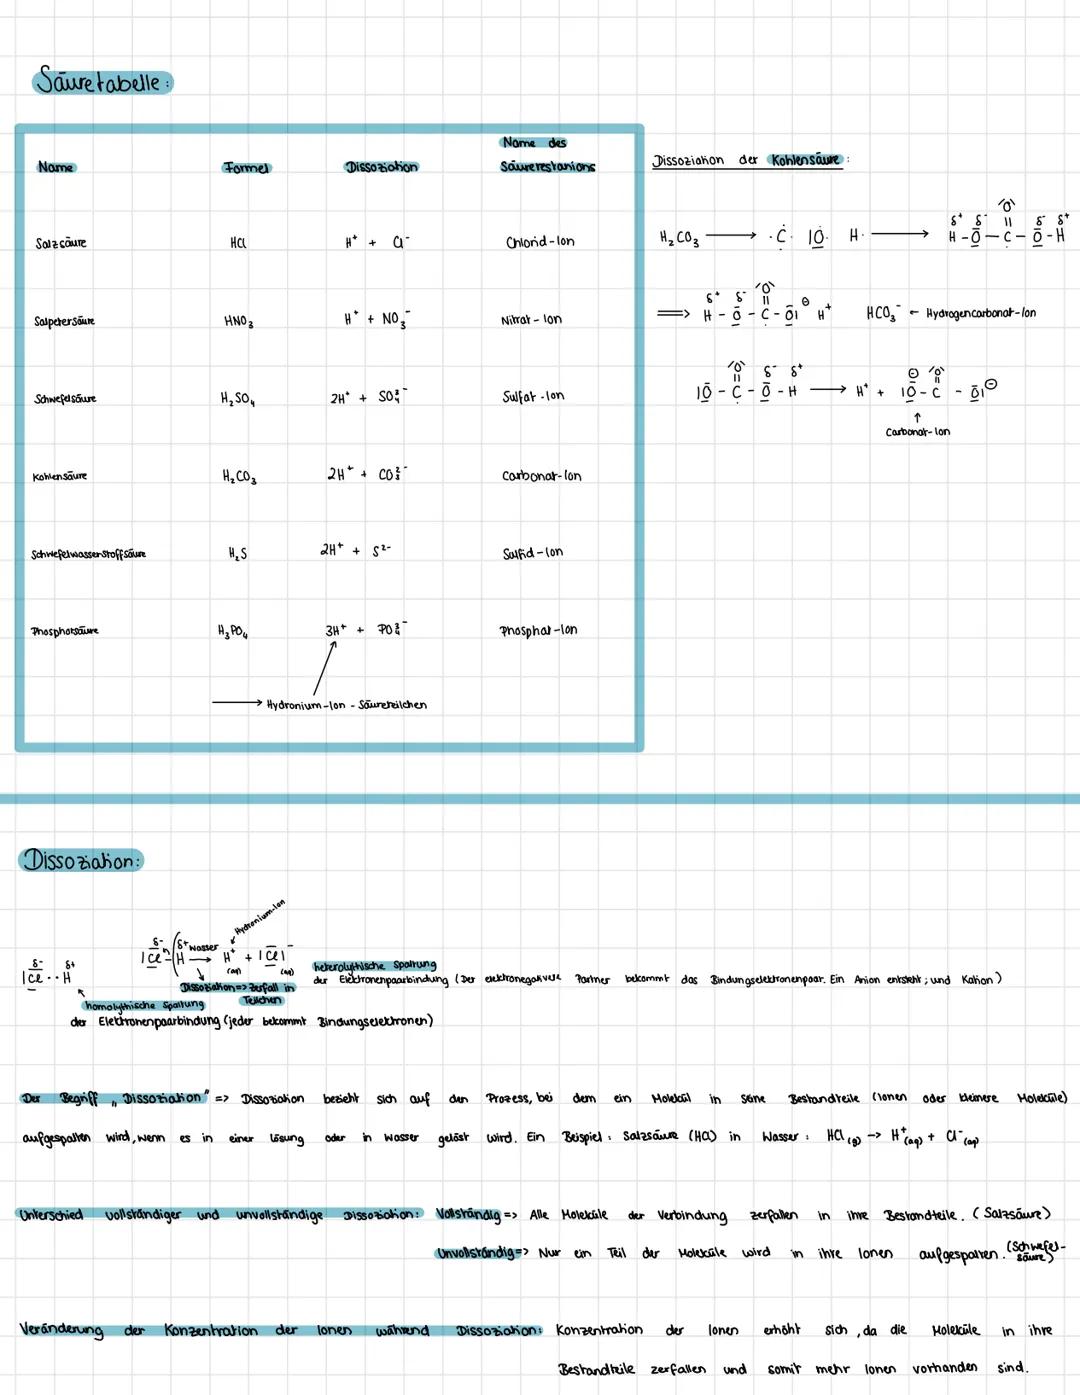 Säuretabelle:
Name Formel Dissoziation Name des Säurerestanions
Salzsäure HCl H⁺ + Cl⁻ Chlorid-Ion
Salpetersäure HNO₃ H⁺ + NO₃⁻ Nitrat-Ion
Schwefelsäure H₂SO₄ 2H⁺ + SO₄²⁻ Sulfat-Ion
Kohlensäure H₂CO₃ 2H⁺ + CO₃²⁻ Carbonat-Ion
Schwefelwasserstoffsäure H₂S 2H⁺ + S²⁻ Sulfid-Ion
Phosphorsäure H₃PO₄ 3H⁺ + PO₄³⁻ Phosphat-Ion
→ Hydronium-Ion - Säureteilchen
Dissoziation der Kohlensäure:
H₂CO₃ → ·C· |O· H· → H-O-C-O-H
δ⁺ δ⁻ O δ⁻ δ⁺
⇒ H-O-C-O|⊖ H⁺ HCO₃⁻ ← Hydrogencarbonat-Ion
δ⁺ δ⁻ O
|O-C-O-H → H⁺ + |O-C-O|⊖
O δ⁻ δ⁺ ⊖ O
↑
Carbonat-Ion
Dissoziation:
Hydronium-Ion
δ⁻ δ⁺ Wasser
|Cl-H → H⁺ + |Cl|⁻
(aq) (aq)
δ⁻ δ⁺
|Cl··H
Dissoziation => Zerfall in Teilchen
heterolythische Spaltung
der Elektronenpaarbindung (Der elektronegativere Partner bekommt das Bindungselektronenpaar. Ein Anion entsteht; und Kation)
homolythische Spaltung
der Elektronenpaarbindung (jeder bekommt Bindungselektronen)
Der Begriff „Dissoziation" => Dissoziation bezieht sich auf den Prozess, bei dem ein Molekül in seine Bestandteile (Ionen oder kleinere Moleküle)
aufgespalten wird, wenn es in einer Lösung oder in Wasser gelöst wird. Ein Beispiel: Salzsäure (HCl) in Wasser: HCl(g) -> H⁺(aq) + Cl⁻(aq)
Unterschied vollständiger und unvollständige Dissoziation: Vollständig => Alle Moleküle der Verbindung zerfallen in ihre Bestandteile. (Salzsäure)
Unvollständig => Nur ein Teil der Moleküle wird in ihre Ionen aufgespalten. (Schwefel-säure)
Veränderung der Konzentration der Ionen während Dissoziation: Konzentration der Ionen erhöht sich, da die Moleküle in ihre
Bestandteile zerfallen und somit mehr Ionen vorhanden sind.